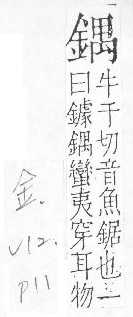 鍝
牛于切音魚鋸也一
曰鐻鍝蠻夷穿耳物
金.
V12.
P11